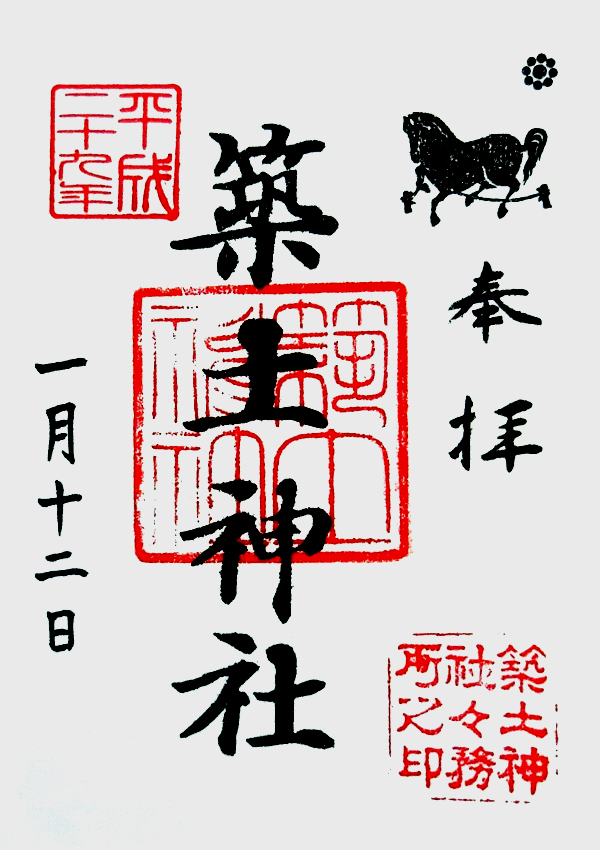 奉拝
築土神社
平成
二十九年
一月十二日
築土神
社々務
所之印